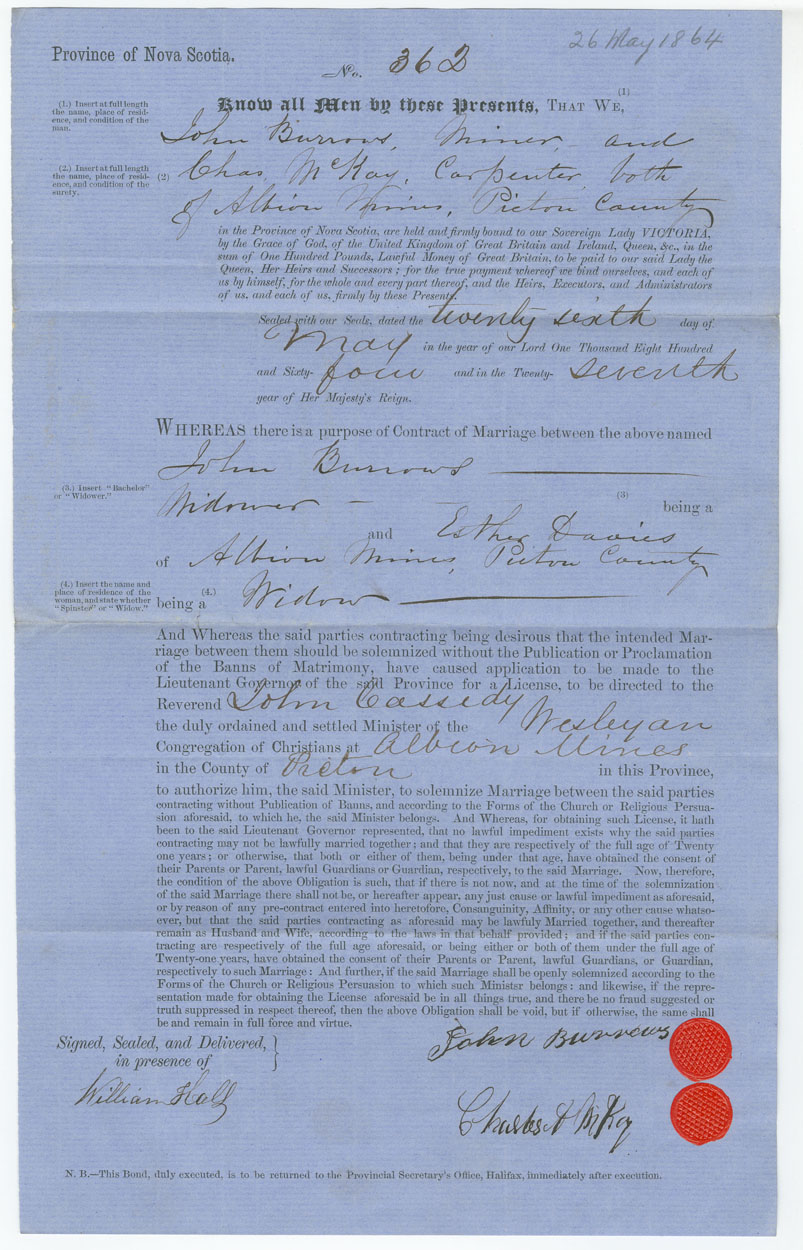 26 May 1864
Province of Nova Scotia.
No. 362
(1.) Insert at full length
the name, place of resid-
ence, and condition of the
man.
Know all Men by these Presents, THAT WE, (1)
John Burrows, Miner, and
(2.) Insert at full length
the name, place of resid-
ence, and condition of the
surety.
(2) Chas McKay, Carpenter, both
of Albion Mines, Pictou County
in the Province of Nova Scotia, are held and firmly bound to our Sovereign Lady VICTORIA,
by the Grace of God, of the United Kingdom of Great Britain and Ireland, Queen, &c., in the
sum of One Hundred Pounds, Lawful Money of Great Britain, to be paid to our said Lady the
Queen, Her Heirs and Successors; for the true payment whereof we bind ourselves, and each of
us by himself, for the whole and every part thereof, and the Heirs, Executors, and Administrators
of us, and each of us, firmly by these Presents.
Sealed with our Seals, dated the twenty sixth day of
May in the year of our Lord One Thousand Eight Hundred
and Sixty- four and in the Twenty- seventh
year of Her Majesty's Reign.
WHEREAS there is a purpose of Contract of Marriage between the above named
John Burrows
(3.) Insert "Bachelor"
or "Widower."
Widower (3) being a
and Esther Davies
of Albion Mines, Pictou County
(4.) Insert the name and
place of residence of the
woman, and state whether
"Spinster" or "Widow."
being a (4.) Widow
And Whereas the said parties contracting being desirous that the intended Mar-
riage between them should be solemnized without the Publication or Proclamation
of the Banns of Matrimony, have caused application to be made to the
Lieutenant Governor of the said Province for a License, to be directed to the
Reverend John Cassedy
the duly ordained and settled Minister of the Wesleyan
Congregation of Christians at Albion Mines
in the County of Pictou in this Province,
to authorize him, the said Minister, to solemnize Marriage between the said parties
contracting without Publication of Banns, and according to the Forms of the Church or Religious Persua-
sion aforesaid, to which he, the said Minister belongs. And Whereas, for obtaining such License, it hath
been to the said Lieutenant Governor represented, that no lawful impediment exists why the said parties
contracting may not be lawfully married together; and that they are respectively of the full age of Twenty
one years; or otherwise, that both or either of them, being under that age, have obtained the consent of
their Parents or Parent, lawful Guardians or Guardian, respectively, to the said Marriage. Now, therefore,
the condition of the above Obligation is such, that if there is not now, and at the time of the solemnization
of the said Marriage there shall not be, or hereafter appear, any just cause or lawful impediment as aforesaid,
or by reason of any pre-contract entered into heretofore, Consanguinity, Affinity, or any other cause whatso-
ever, but that the said parties contracting as aforesaid may be lawfuly Married together, and thereafter
remain as Husband and Wife, according to the laws in that behalf provided; and if the said parties con-
tracting are respectively of the full age aforesaid, or being either or both of them under the full age of
Twenty-one years, have obtained the consent of their Parents or Parent, lawful Guardians, or Guardian,
respectively to such Marriage: And further, if the said Marriage shall be openly solemnized according to the
Forms of the Church or Religious Persuasion to which such Ministsr belongs: and likewise, if the repre-
sentation made for obtaining the License aforesaid be in all things true, and there be no fraud suggested or
truth suppressed in respect thereof, then the above Obligation shall be void, but if otherwise, the same shall
be and remain in full force and virtue.
Signed, Sealed, and Delivered,
in presence of
John Burrows
William Hall
Charles A McKay
N. B.—This Bond, duly executed, is to be returned to the Provincial Secretary's Office, Halifax, immediately after execution.